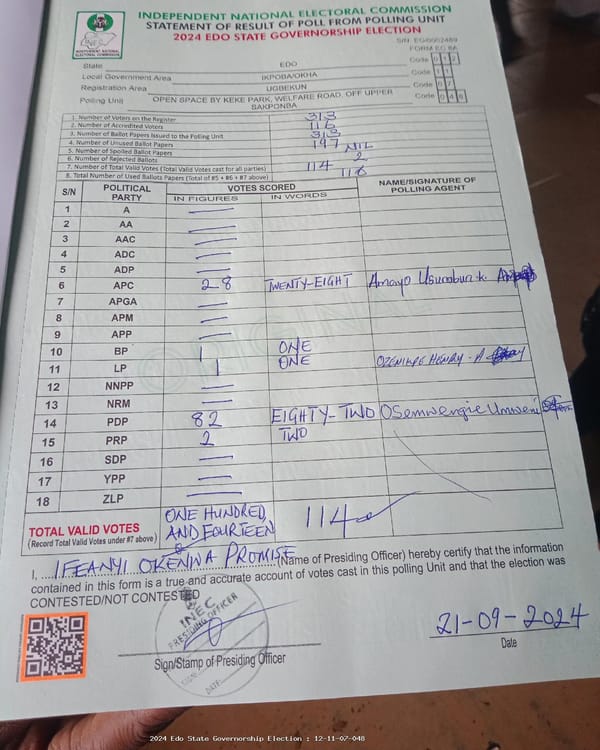 INDEPENDENT NATIONAL ELECTORAL COMMISSION
STATEMENT OF RESULT OF POLL FROM POLLING UNIT
2024 EDO STATE GOVERNORSHIP ELECTION
INEC
INDEPENDENT NATIONAL ELECTORAL COMMISSION
FORM EC 8A
State EDO Code 0 1 2
Local Government Area IKPOBA/OKHA Code 1 1
Registration Area UGBEKUN Code 0 7
Polling Unit OPEN SPACE BY KEKE PARK, WELFARE ROAD, OFF UPPER SAKPONBA Code 0 4 8
1. Number of Voters on the Register 313
2. Number of Accredited Voters 116
3. Number of Ballot Papers Issued to the Polling Unit 313
4. Number of Unused Ballot Papers 197
5. Number of Spoiled Ballot Papers NIL
6. Number of Rejected Ballots 2
7. Number of Total Valid Votes (Total Valid Votes cast for all parties) 114
8. Total Number of Used Ballots Papers (Total of #5 + #6 + #7 above) 116
S/N POLITICAL PARTY VOTES SCORED NAME/SIGNATURE OF POLLING AGENT
IN FIGURES IN WORDS
1 A —
2 AA —
3 AAC —
4 ADC —
5 ADP —
6 APC 28 TWENTY-EIGHT Amayo Usunobun k.
7 APGA —
8 APM —
9 APP —
10 BP 1 ONE
11 LP 1 ONE HENRY - A
12 NNPP —
13 NRM —
14 PDP 82 EIGHTY-TWO Osemwengie Umweni
15 PRP 2 TWO
16 SDP —
17 YPP —
18 ZLP —
TOTAL VALID VOTES ONE HUNDRED AND FOURTEEN 114
(Record Total Valid Votes under #7 above)
I, IFEANYI OKENWA PROMISE (Name of Presiding Officer) hereby certify that the information
contained in this form is a true and accurate account of votes cast in this polling Unit and that the election was
CONTESTED/NOT CONTESTED
INEC
PRESIDING OFFICER
DATE:
21-09-2024
Sign/Stamp of Presiding Officer
Date
2024 Edo State Governorship Election : 12-11-07-048